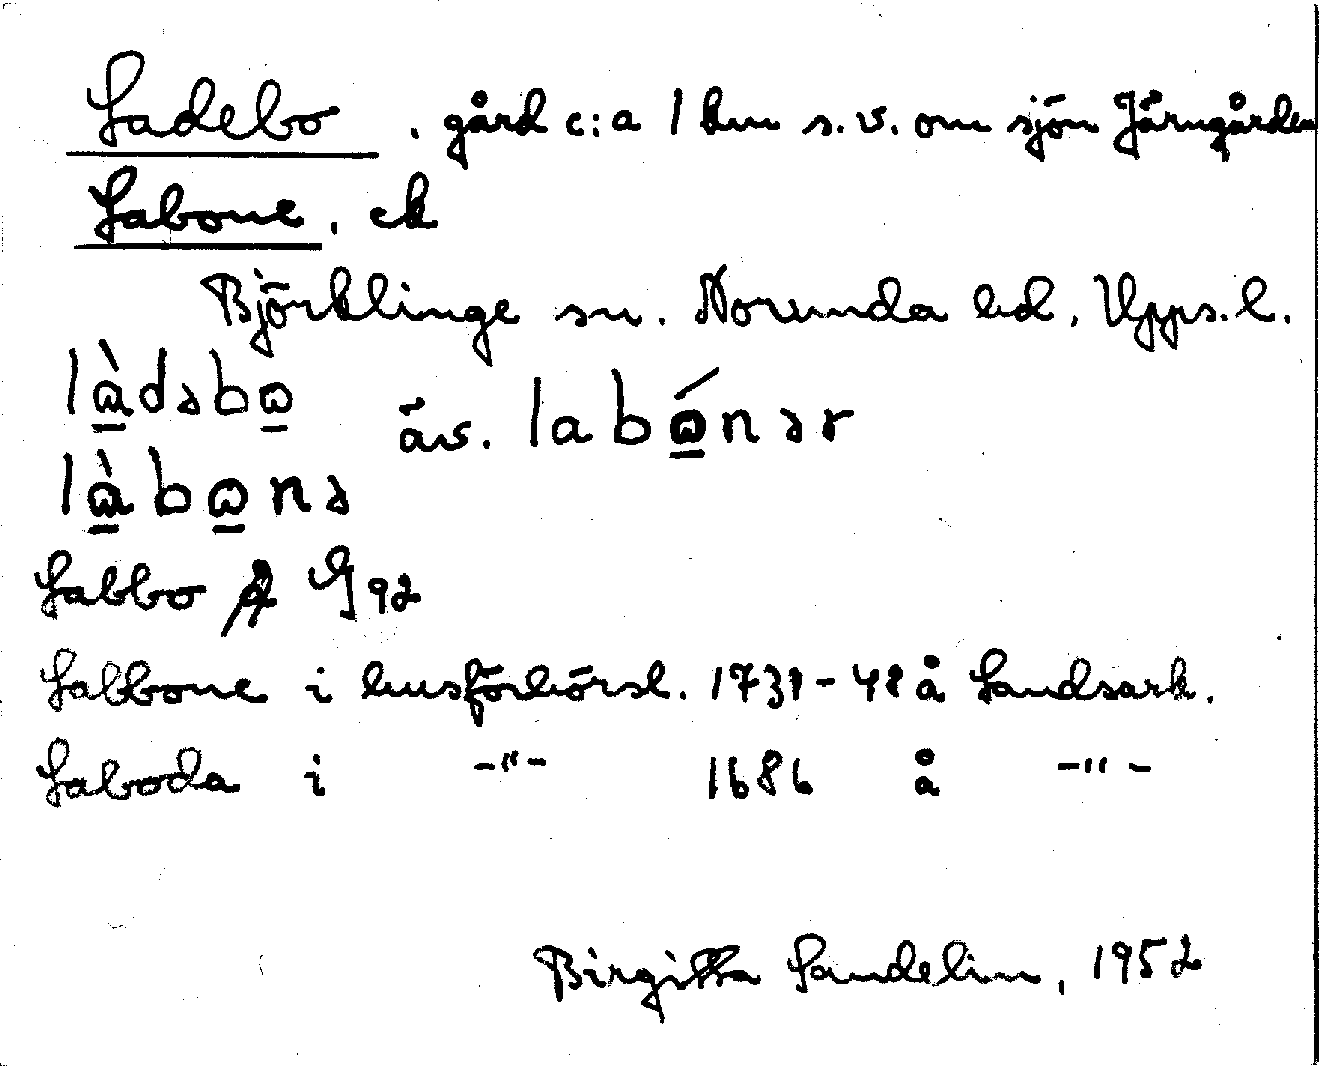 Ladebo, gård c:a 1 km s.v. om sjön Järngården
Labone, ek
Björklinge sn. Norunda hd, Upps. l.
làdəbω äv. labώnər
làbωnə
Labbo å G 92
Labbone i husförhörsl. 1739-48 å Landsark.
Laboda i -"- 1686 å -"-
Birgitta Sandelin, 1952